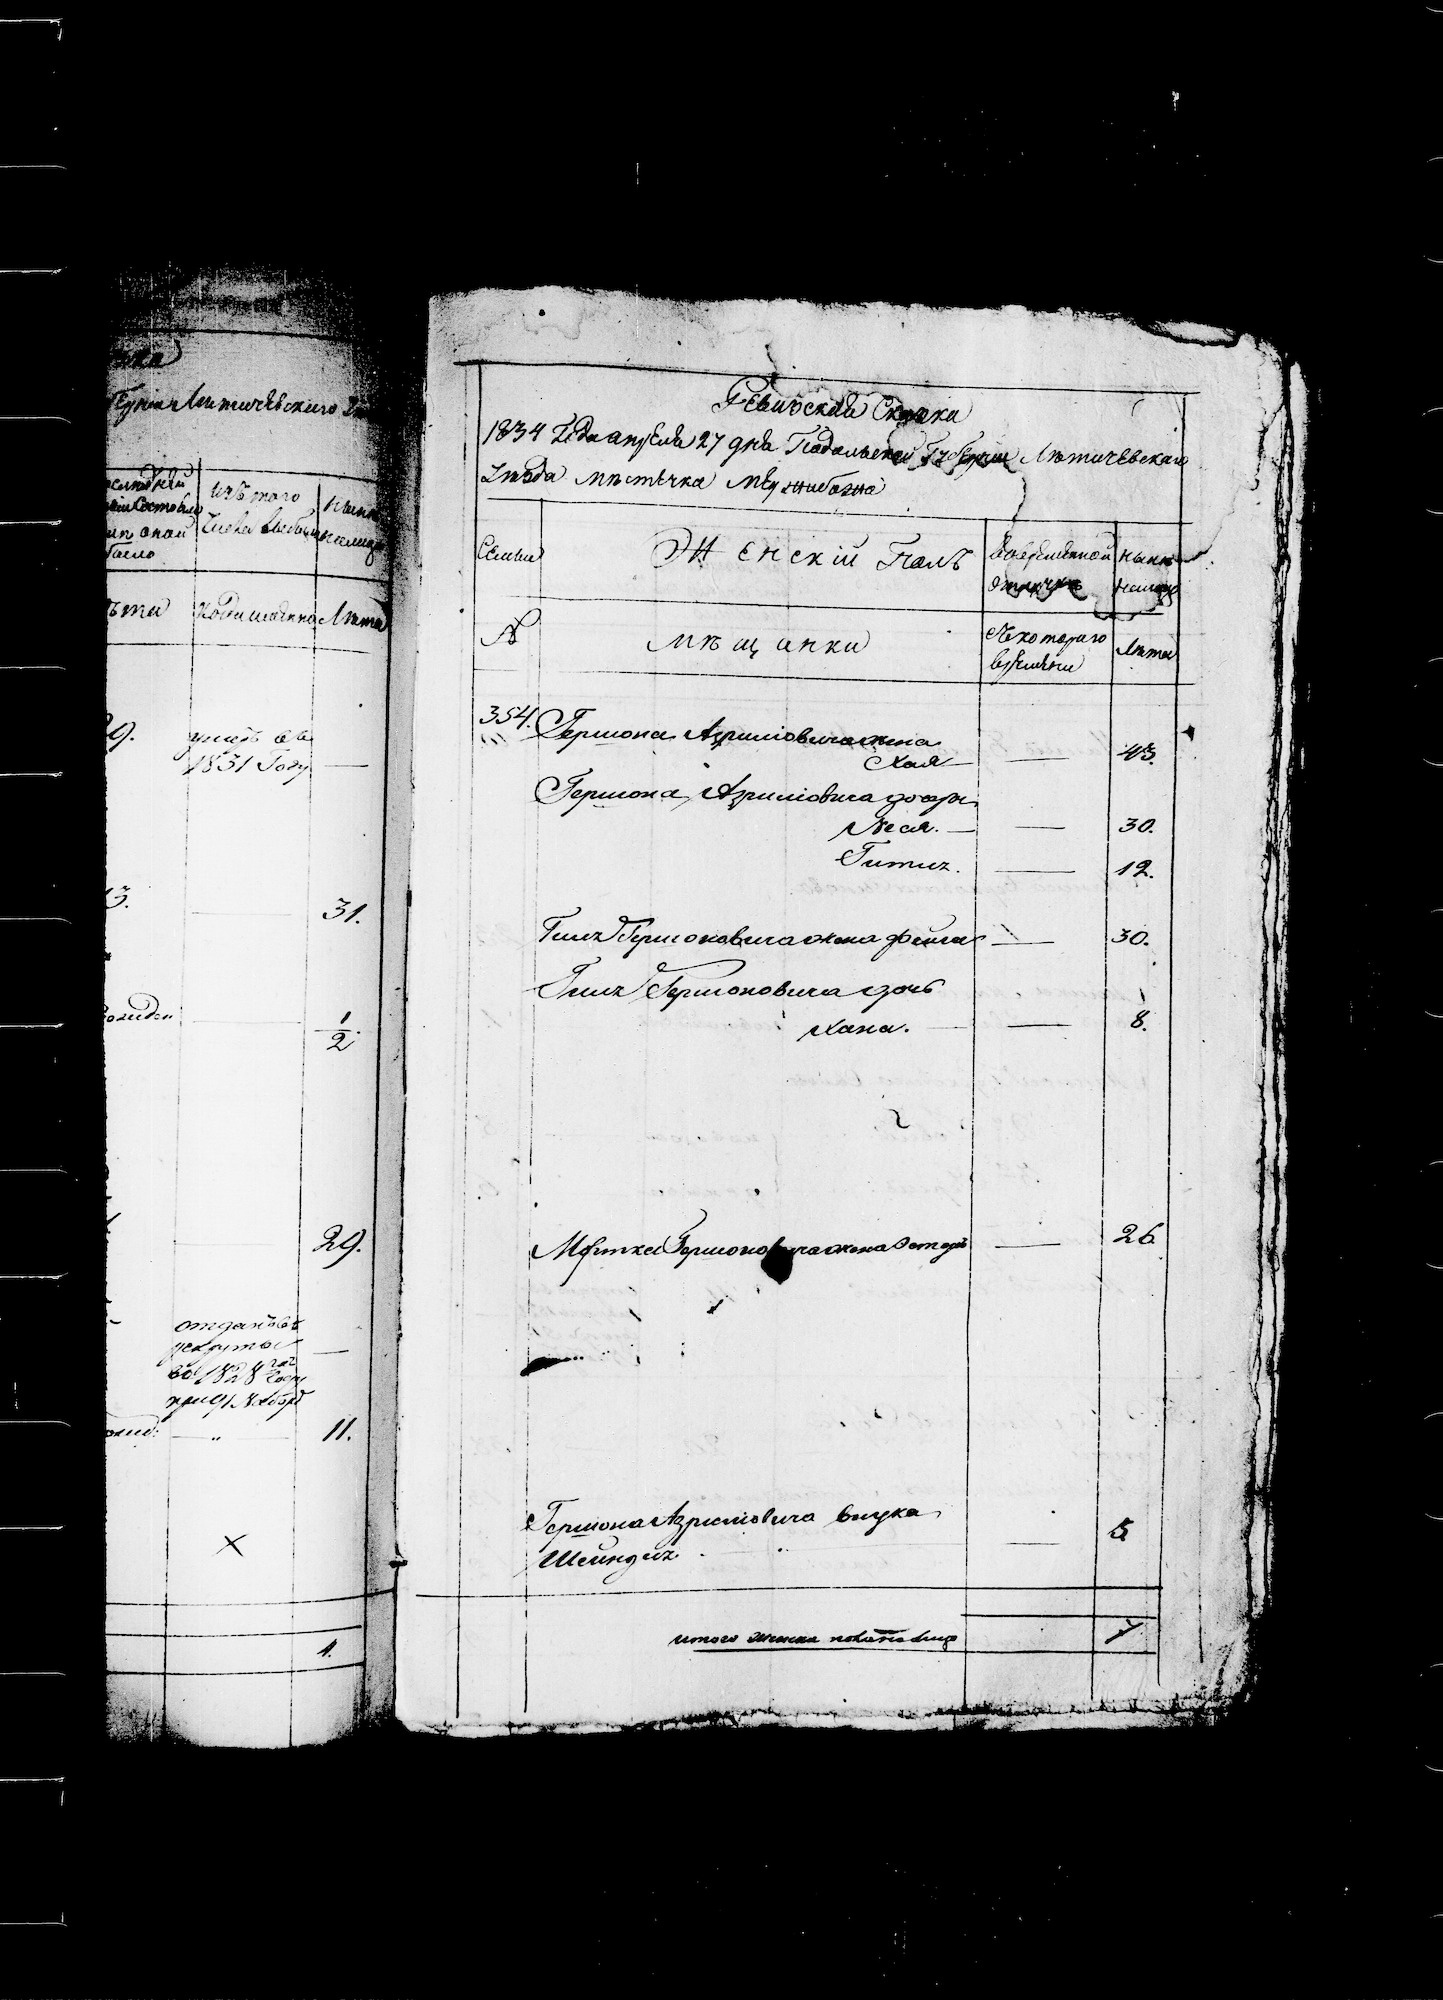 Губернія Литичевского
изъ того
числа выбыло
нынѣ
налицо
Когда именно
Лѣта
умеръ въ
1831 Году
31.
1/2
29.
отданъ въ
рекруты
во 1828 Году
при 91 Наборѣ
11.
1.
Ревизская Сказка
1834 Года апреля 27 дня Подольской Губерніи Лѣтичевскаго
Уѣзда мѣстечка Межибожа
Семьи
Женскій Полъ
Во временной
отлучкѣ
Нынѣ
налицо
№
мѣщанки
Съ котораго
времени
Лѣта
354.
Гершона Азриліовича жена
Хая — 43.
Гершона Азриліовича дочери
Неся. — 30.
Гитля. — 12.
Гершоновича жена Фейга — 30.
Гершоновича дочь
Хана. — 8.
Мошка Гершоновича жена Эстеръ — 26
Гершона Азриліовича внука
Шейндля. — 5
итого женска полу на лицо 7